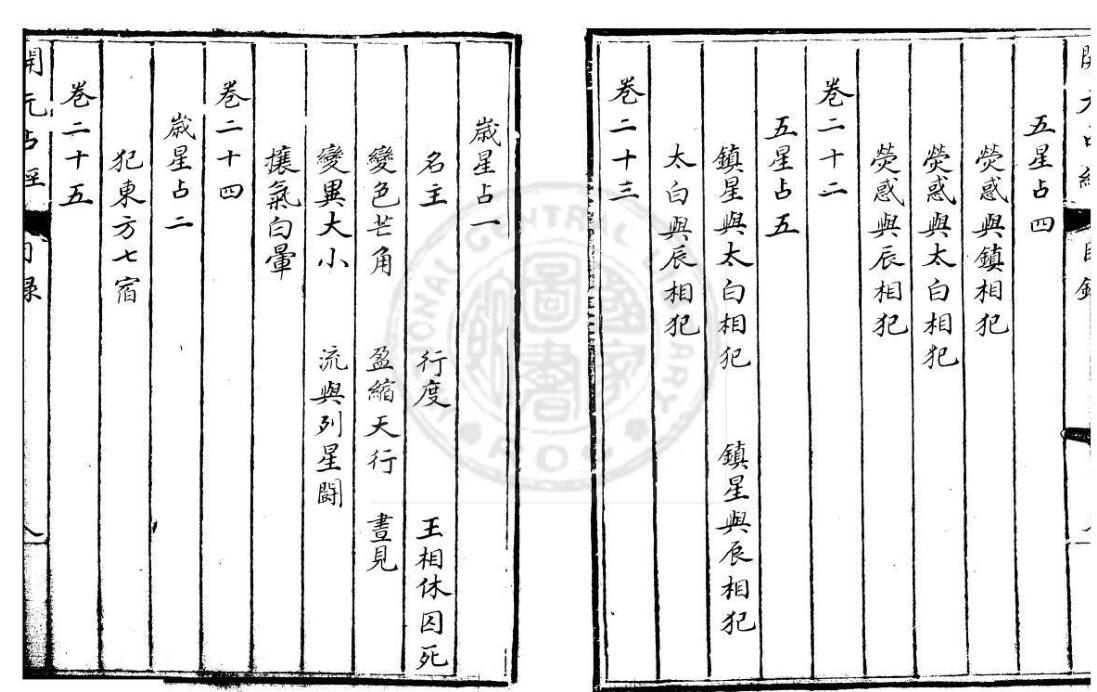 開元占經
目錄
五星占四
熒惑與鎮相犯
熒惑與太白相犯
熒惑與辰相犯
卷二十二
五星占五
鎮星與太白相犯 鎮星與辰相犯
太白與辰相犯
卷二十三
歲星占一
名主 行度 王相休囚死
變色芒角 盈縮天行 晝見
變異大小 流與列星鬪
攘氣白暈
卷二十四
歲星占二
犯東方七宿
卷二十五
開元占經
目錄
八
NATIONAL CENTRAL LIBRARY
ROC
國家圖書館